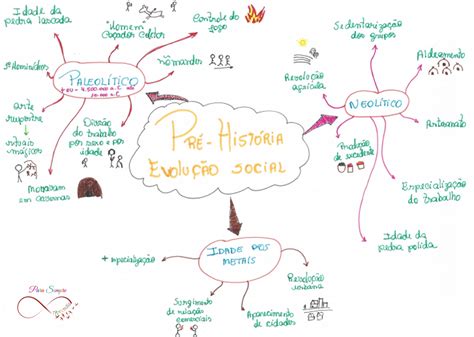 Idade da
pedra lascada
"Homem
Caçador Coletor
Controle do
fogo
nômandes
1º Hominídeos
PALEOLÍTICO
arte
rupestre
rituais
mágicos
Divisão
do trabalho
por sexo e por
idade
Moravam
em cavernas
PRÉ-HISTÓRIA
EVOLUÇÃO SOCIAL
Sedentarização
dos grupos
Aldeamento
Revolução
agrícola
NEOLÍTICO
Artesanato
Produção
de excedente
Especialização
do trabalho
Idade da
pedra polida
IDADE DOS
METAIS
+ especialização
Revolução
urbana
Surgimento
de relação
comerciais
Aparecimento
de cidades
Para Sempre